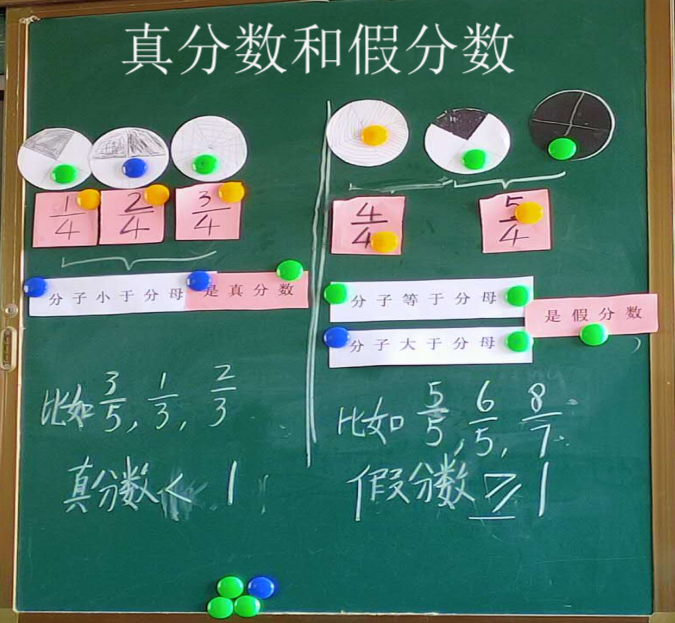 真分数和假分数
1/4 2/4 3/4
分子小于分母 是真分数
比如 3/5, 1/3, 2/3
真分数 < 1
4/4 5/4
分子等于分母
是假分数
分子大于分母
比如 5/5, 6/5, 8/7
假分数 ≥ 1